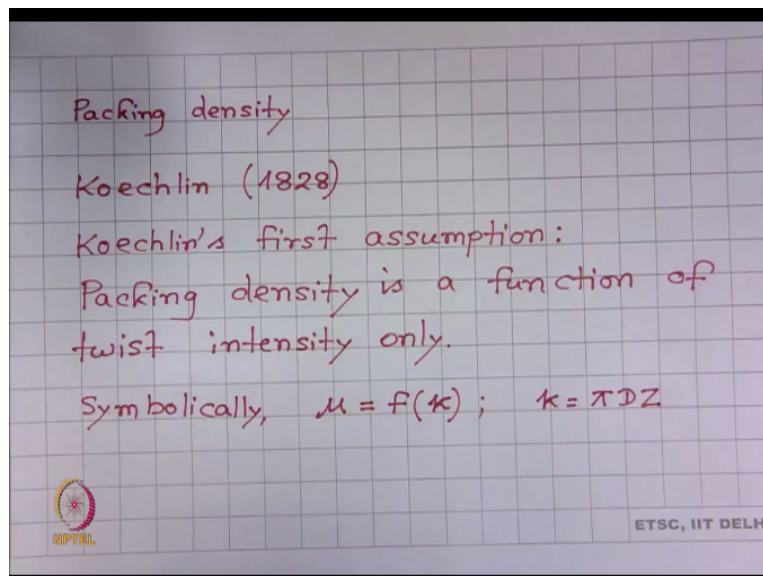 Packing density
Koechlin (1828)
Koechlin's first assumption:
Packing density is a function of
twist intensity only.
Symbolically, μ = f(κ); κ = πDZ
NPTEL
ETSC, IIT DELH